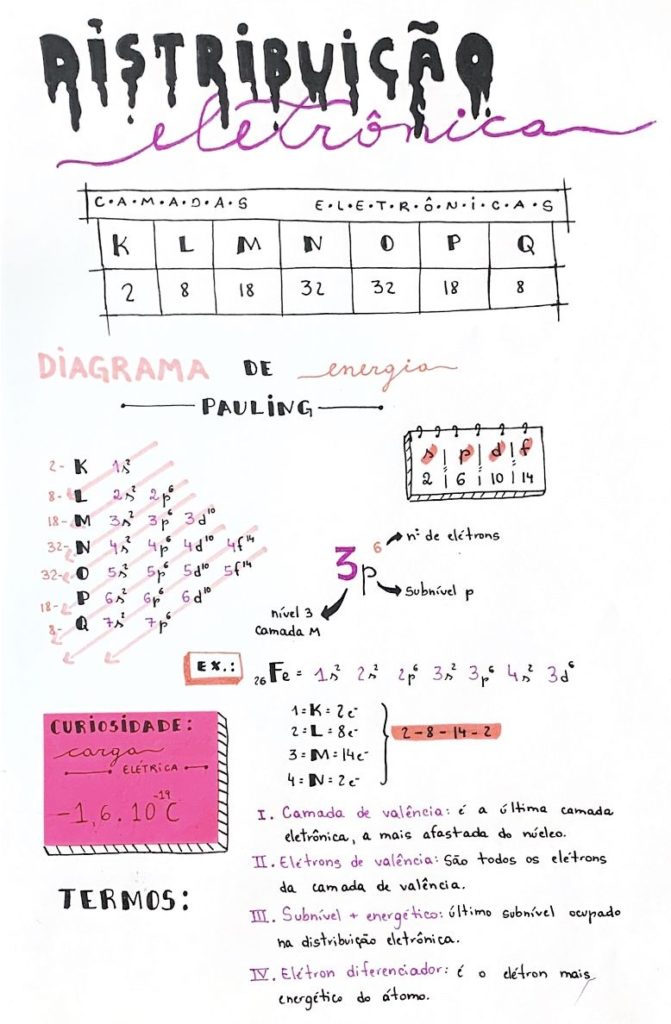 DISTRIBUIÇÃO
eletrônica
C·A·M·A·D·A·S E·L·E·T·R·Ô·N·I·C·A·S
K L M N O P Q
2 8 18 32 32 18 8
DIAGRAMA DE energia
PAULING
s | p | d | f
2 | 6 | 10 | 14
2- K 1s²
8- L 2s² 2p⁶
18- M 3s² 3p⁶ 3d¹⁰
32- N 4s² 4p⁶ 4d¹⁰ 4f¹⁴
32- O 5s² 5p⁶ 5d¹⁰ 5f¹⁴
18- P 6s² 6p⁶ 6d¹⁰
8- Q 7s² 7p⁶
3p⁶
nº de elétrons
Subnível p
nível 3
camada M
EX.: ₂₆Fe = 1s² 2s² 2p⁶ 3s² 3p⁶ 4s² 3d⁶
1 = K = 2e⁻
2 = L = 8e⁻
3 = M = 14e⁻
4 = N = 2e⁻
2 - 8 - 14 - 2
CURIOSIDADE:
carga
ELÉTRICA
-1,6.10⁻¹⁹C
TERMOS:
I. Camada de valência: é a última camada
eletrônica, a mais afastada do núcleo.
II. Elétrons de valência: São todos os elétrons
da camada de valência.
III. Subnível + energético: último subnível ocupado
na distribuição eletrônica.
IV. Elétron diferenciador: é o elétron mais
energético do átomo.